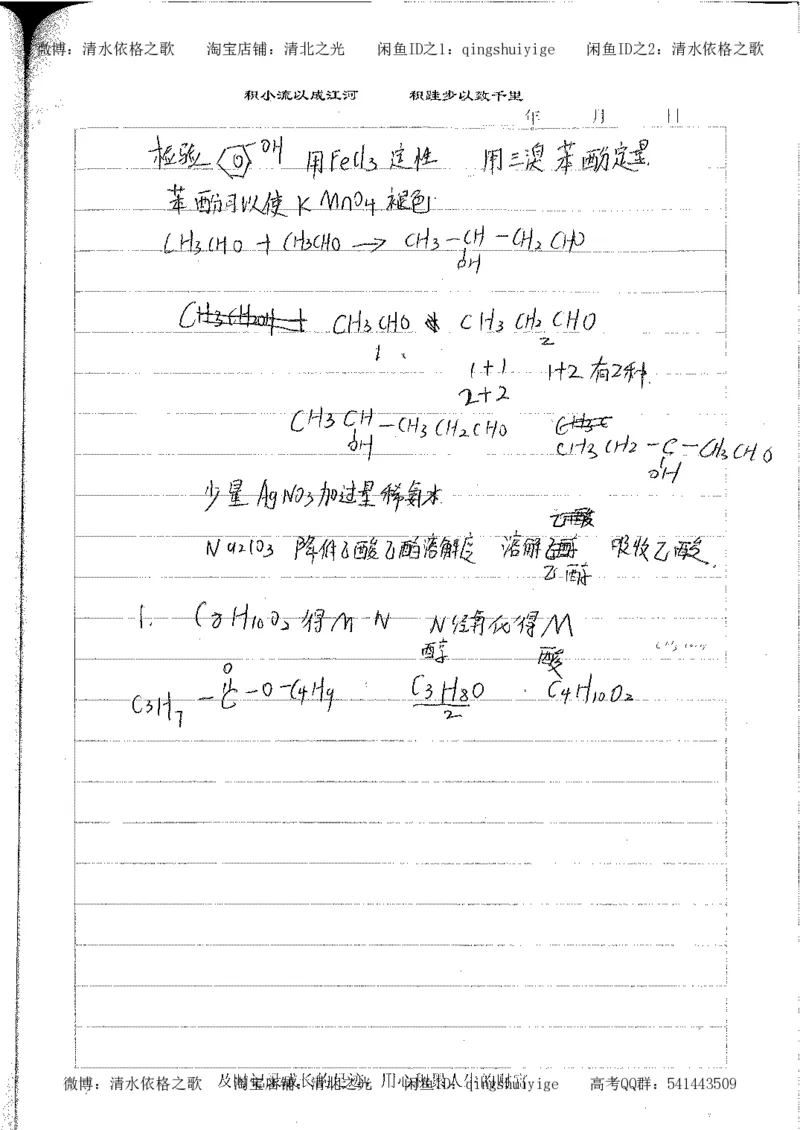 微博：清水依格之歌 淘宝店铺：清北之光 闲鱼ID之1：qingshuiyige 闲鱼ID之2：清水依格之歌
积小流以成江河 积跬步以致千里
年 月 日
检验 OH 用FeCl3 定性 用三溴苯酚定量
苯酚可以使KMnO4褪色
CH3CHO + CH3CHO → CH3-CH-CH2CHO
OH
CH3CHO CH3CH2CHO
1 2
1+1 1+2 有2种
2+2
CH3CH-CH3CH2CHO CH3CH2-C-CH3CHO
OH OH
少量AgNO3加过量稀氨水
乙酸
Na2CO3 降低乙酸乙酯溶解度 溶解 吸收乙酸.
乙醇
1. C8H10O2得M N N经氧化得M
醇 酸
O
C3H7-C-O-C4H9 C3H8O C4H10O2
2
微博：清水依格之歌 淘宝店铺：清北之光 闲鱼ID：qingshuiyige 高考QQ群：541443509